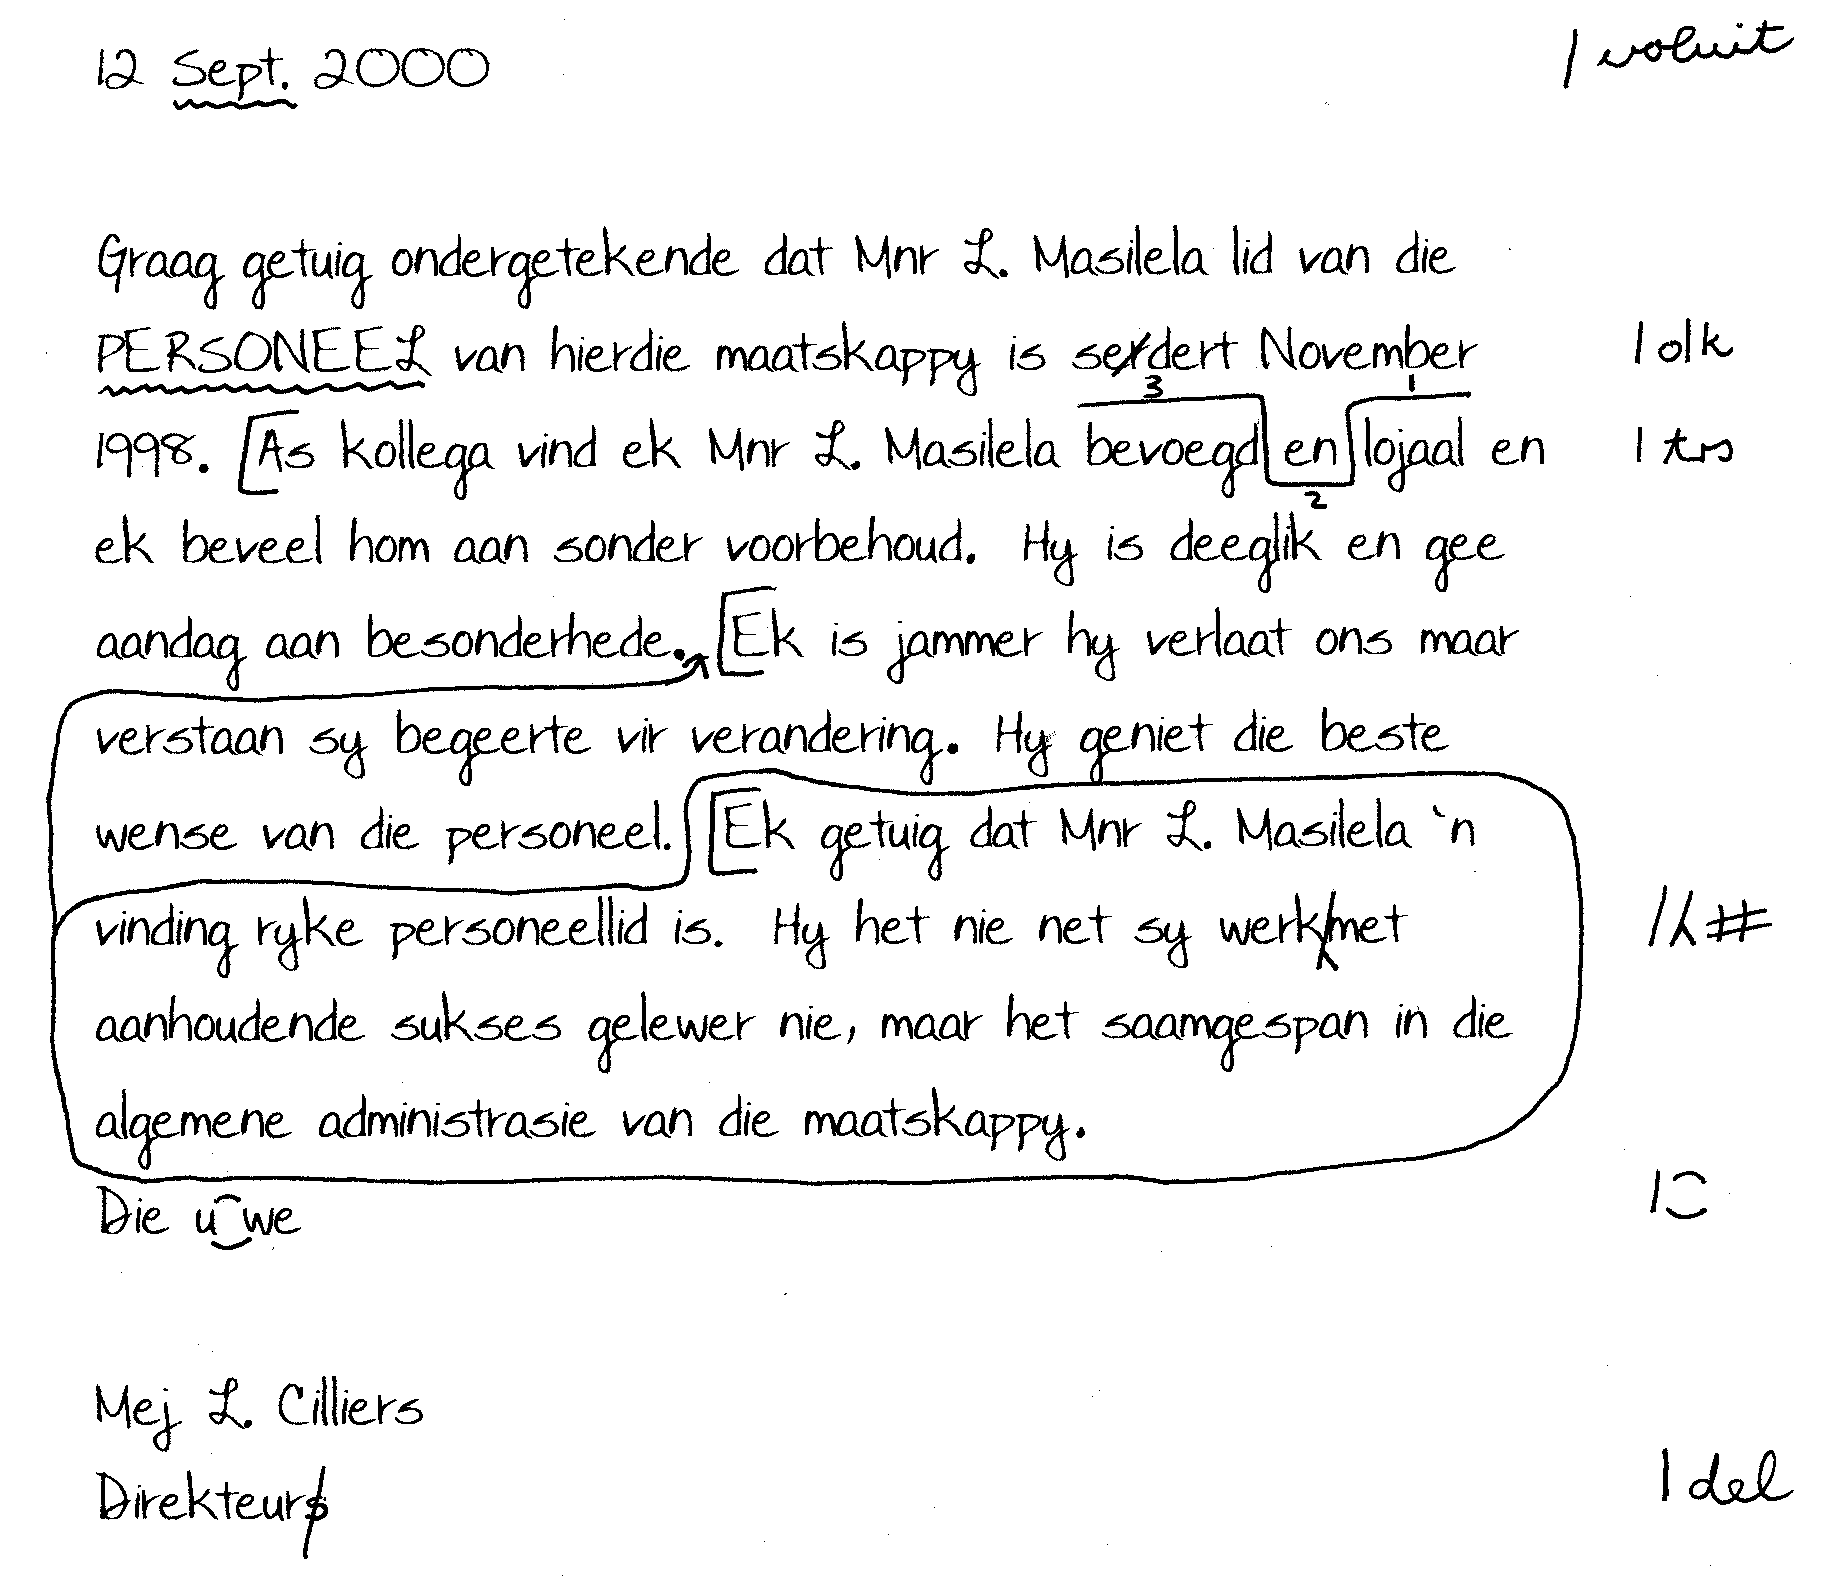 12 Sept. 2000 / voluit
Graag getuig ondergetekende dat Mnr L. Masilela lid van die
PERSONEEL van hierdie maatskappy is sexdert November / olk
3 1
1998. [As kollega vind ek Mnr L. Masilela bevoegd en lojaal en / trs
2
ek beveel hom aan sonder voorbehoud. Hy is deeglik en gee
aandag aan besonderhede. [Ek is jammer hy verlaat ons maar
verstaan sy begeerte vir verandering. Hy geniet die beste
wense van die personeel. [Ek getuig dat Mnr L. Masilela 'n
vinding ryke personeellid is. Hy het nie net sy werk/met / #
aanhoudende sukses gelewer nie, maar het saamgespan in die
algemene administrasie van die maatskappy.
Die u we /
Mej L. Cilliers
Direkteurs / del